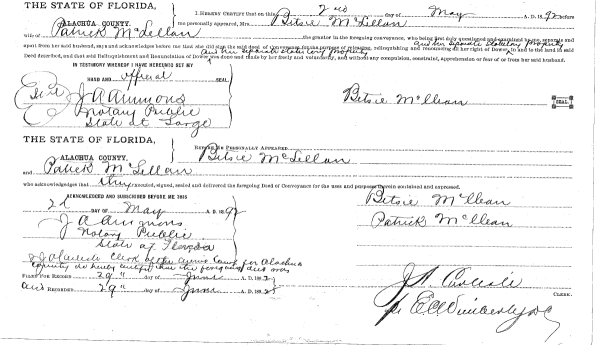 THE STATE OF FLORIDA,
ALACHUA COUNTY.
I HEREBY CERTIFY that on this 2nd day of May A. D. 1892 before
me personally appeared, Mrs. Betsie McLellan
wife of Patrick McLellan the grantor in the foregoing conveyance, who being first duly questioned and examined by me separate and
and her separate statutory property
apart from her said husband, says and acknowledges before me that she did sign the said deed of Conveyance for the purpose of releasing, relinquishing and renouncing all her right of Dower in and to the land in said
and her separate statutory property
Deed described, and that said Relinquishment and Renunciation of Dower was done and made by her freely and voluntarily, and without any compulsion, constraint, apprehension or fear of or from her said husband.
IN TESTIMONY WHEREOF I HAVE HEREUNTO SET MY
HAND AND official SEAL
J A Ammons
Notary Public
State at Large
Betsie McClean
SEAL.
THE STATE OF FLORIDA,
ALACHUA COUNTY.
BEFORE ME PERSONALLY APPEARED Betsie McLellan
and Patrick McLellan
who acknowledges that they executed, signed, sealed and delivered the foregoing Deed of Conveyance for the uses and purposes therein contained and expressed.
ACKNOWLEDGED AND SUBSCRIBED BEFORE ME THIS
2d DAY OF May A. D. 1892
J A Ammons
Notary Public
State of Florida
Betsie McClean
Patrick McClean
Clerk of the Circuit Court for Alachua
County do hereby certify that the foregoing deed was
FILED FOR RECORD 29" DAY OF June A. D. 189
and RECORDED 29" DAY OF June A. D. 189
J. A. Carlisle CLERK.
pr E C Wimberly DC